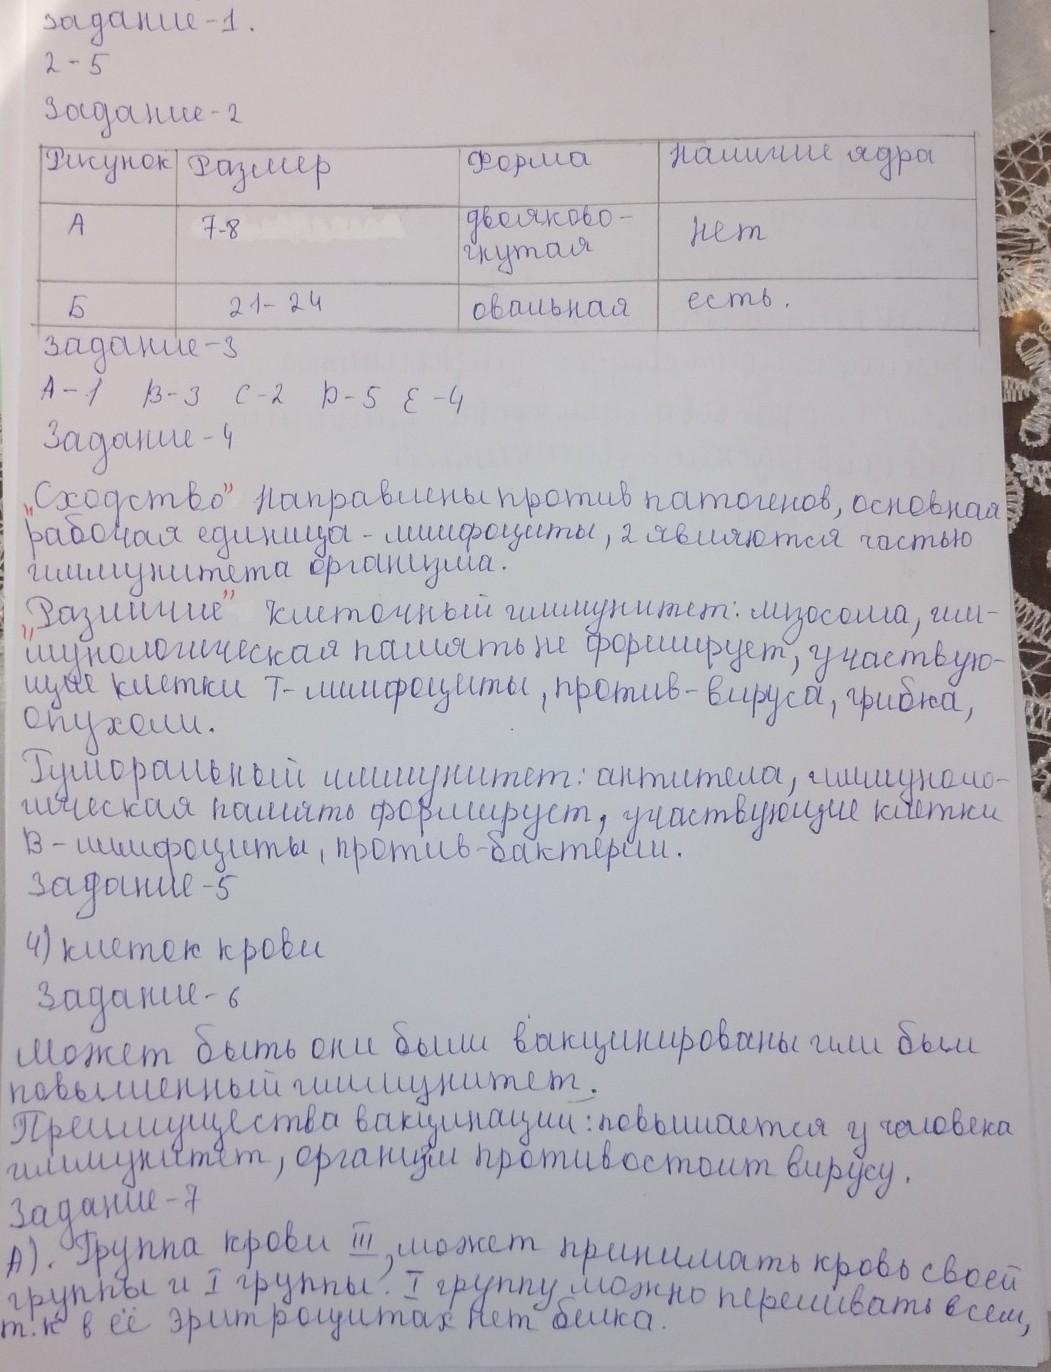 Задание-1.
2-5
Задание-2
Рисунок Размер Форма Наличие ядра
А 7-8 двояково-
гнутая нет
Б 21-24 овальная есть.
Задание-3
А-1 В-3 С-2 D-5 Е-4
Задание-4
„Сходство” Направлены против патогенов, основная
рабочая единица - лимфоциты, 2 являются частью
иммунитета организма.
„Различие” Клеточный иммунитет: лизосома, им-
мунологическая память не формирует, участвую-
щие клетки Т-лимфоциты, против-вируса, грибка,
опухоли.
Гуморальный иммунитет: антитела, иммуноло-
гическая память формирует, участвующие клетки
В-лимфоциты, против-бактерии.
Задание-5
4) клеток крови
Задание-6
Может быть они были вакцинированы или был
повышенный иммунитет.
Преимущества вакцинации: повышается у человека
иммунитет, организм противостоит вирусу.
Задание-7
А). Группа крови III, может принимать кровь своей
группы и I группы. I группу можно переливать всем,
т.к в её эритроцитах нет белка.